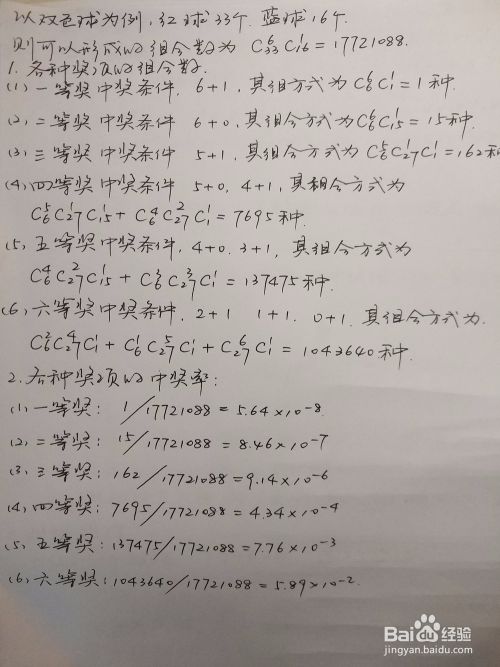 以双色球为例，红球33个，蓝球16个
则可以形成的组合数为 C₃₃⁶C₁₆¹=17721088.
1. 各种奖项的组合数.
(1) 一等奖中奖条件，6+1，其组方式为C₆⁶C₁¹=1种.
(2) 二等奖中奖条件 6+0，其组合方式为C₆⁶C₁₅¹=15种.
(3) 三等奖中奖条件 5+1，其组合方式为 C₆⁵C₂₇¹C₁¹=162种
(4) 四等奖中奖条件 5+0, 4+1，其组合方式为
C₆⁵C₂₇¹C₁₅¹+C₆⁴C₂₇²C₁¹=7695种
(5) 五等奖中奖条件，4+0, 3+1，其组合方式为
C₆⁴C₂₇²C₁₅¹+C₆³C₂₇³C₁¹=137475种.
(6) 六等奖中奖条件，2+1 1+1, 0+1，其组合方式为.
C₆²C₂₇⁴C₁¹+C₆¹C₂₇⁵C₁¹+C₂₇⁶C₁¹=1043640种.
2. 各种奖项的中奖率:
(1) 一等奖: 1/17721088=5.64×10-8.
(2) 二等奖: 15/17721088=8.46×10-7
(3) 三等奖: 162/17721088=9.14×10-6
(4) 四等奖: 7695/17721088=4.34×10-4
(5) 五等奖: 137475/17721088=7.76×10-3
(6) 六等奖: 1043640/17721088=5.89×10-2.
Bai度经验
jingyan.baidu.com